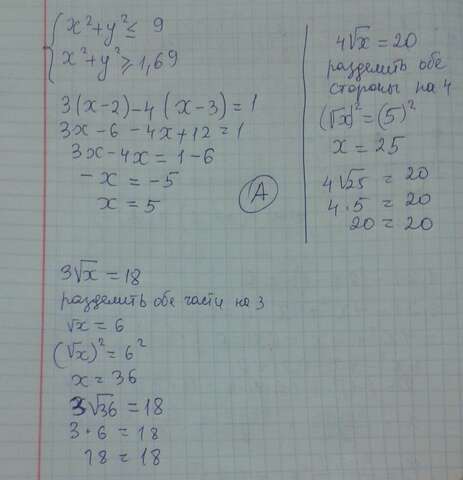 x²+y² ≤ 9
x²+y² ≥ 1,69
3(x-2)-4(x-3)=1
3x-6-4x+12=1
3x-4x=1-6
-x=-5
x=5
A
4√x=20
разделить обе
стороны на 4
(√x)²=(5)²
x=25
4√25=20
4·5=20
20=20
3√x=18
разделить обе части на 3
√x=6
(√x)²=6²
x=36
3√36=18
3·6=18
18=18